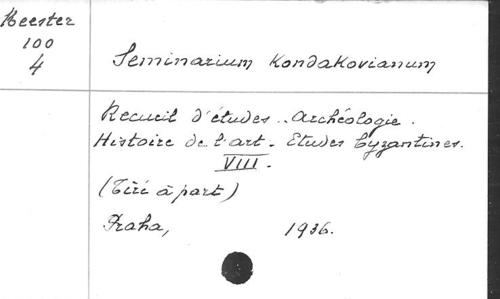 Meester
100
4
Seminarium Kondakovianum
Recueil d'études.. Archéologie.
Histoire de l'art. Etudes byzantines.
VIII.
(Tiré à part)
Praha, 1936.